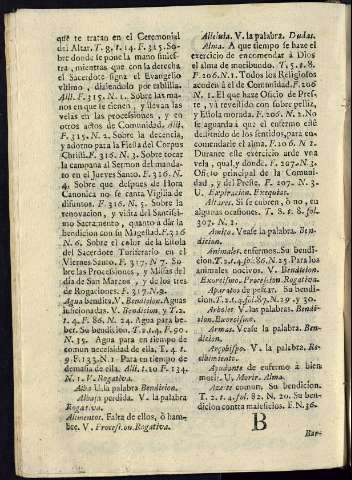 què te tratan en el Ceremonial
del Altar. T. 8, t. 14. F. 315. So-
bre donde se pone la mano sinies-
tra, mientras que con la derecha
el Sacerdote signa el Evangelio
ultimo, diziendolo por tablilla.
Alli. F. 315. N. 1. Sobre las ma-
nos en que se tienen, y llevan las
velas en las processiones, y en
otros actos de Comunidad. Alli.
F. 315. N. 2. Sobre la decencia,
y adorno para la Fiesta del Corpus
Christi. F. 316. N. 3. Sobre tocar
la campana al Sermon del manda-
to en el Jueves Santo. F. 316. N.
4. Sobre que despues de Hora
Canonica no se canta Vigilia de
difuntos. F. 316. N. 5. Sobre la
renovacion, y visita del Santissi-
mo Sacramento, quanto à dàr la
bendicion con su Magestad. F. 316
N. 6. Sobre el color de la Estola
del Sacerdote Turiferario en el
Viernes Santo. F. 317. N. 7. So-
bre las Processiones, y Missas del
dia de San Marcos, y de los tres
de Rogaciones. F. 317. N. 8.
Agua bendita. V. Bendicion. Aguas
inficionadas. V. Bendicion, y T. 2.
t. 4. F. 86. N. 24. Agua para be-
ber. Su bendicion. T. 2. t. 4. F. 90.
N. 35. Agua para en tiempo de
comun necesidad de ella. T. 4. t.
9. F. 133. N. 1. Para en tiempo de
demasia de ella. Alli. t. 10. F. 134.
N. 1. V. Rogativa.
Alba U. la palabra Bendicion.
Albaja perdida. V. la palabra
Rogativa.
Alimentos. Falta de ellos, ò ham-
bre. V. Procession. Rogativa.
Alleluia. V. la palabra. Dudas.
Alma. A que tiempo se haze el
exercicio de encomendar à Dios
el alma de moribundo. T. 5. t. 8.
F. 206. N. 1. Todos los Religiosos
acuden à el de Comunidad. F. 206
N. 1. El que haze Oficio de Pres-
te, và revestido con sobre pelliz,
y Estola morada. F. 206. N. 2. No
se aguarda à que el enfermo estè
destituido de los sentidos, para en-
comendarle el alma. F. 206. N. 2.
Durante este exercicio arde vna
vela, qual, y donde. F. 207. N. 3.
Oficio principal de la Comuni-
dad, y del Preste. F. 207. N. 3.
U. Espirar. Exequias.
Altares. Si se cubren, ò no, en
algunas ocasiones. T. 8. t. 8. fol.
307. N. 2.
Amito. Vease la palabra. Ben-
dicion.
Animales. enfermos. Su bendi-
cion. T. 2. t. 4. fo. 86. N. 25. Para los
animales nocivos. V. Bendicion.
Exorcismo. Procession. Rogativa.
Aparatos de pescar. Su bendi-
cion. T. 2. t. 4. fol. 87. N. 29. y 30.
Arboles. V. las palabras. Bendi-
cion. Exorcismo.
Armas. Vease la palabra. Ben-
dicion.
Arzobispo. V. la palabra. Re-
cibimiento.
Ayudante de enfermo à bien
morir. U. Morir. Alma.
Azeite comun. Su bendicion.
T. 2. t. 4. fol. 82. N. 20. Su ben-
dicion contra maleficios. F. N. 36.
B
Bar-